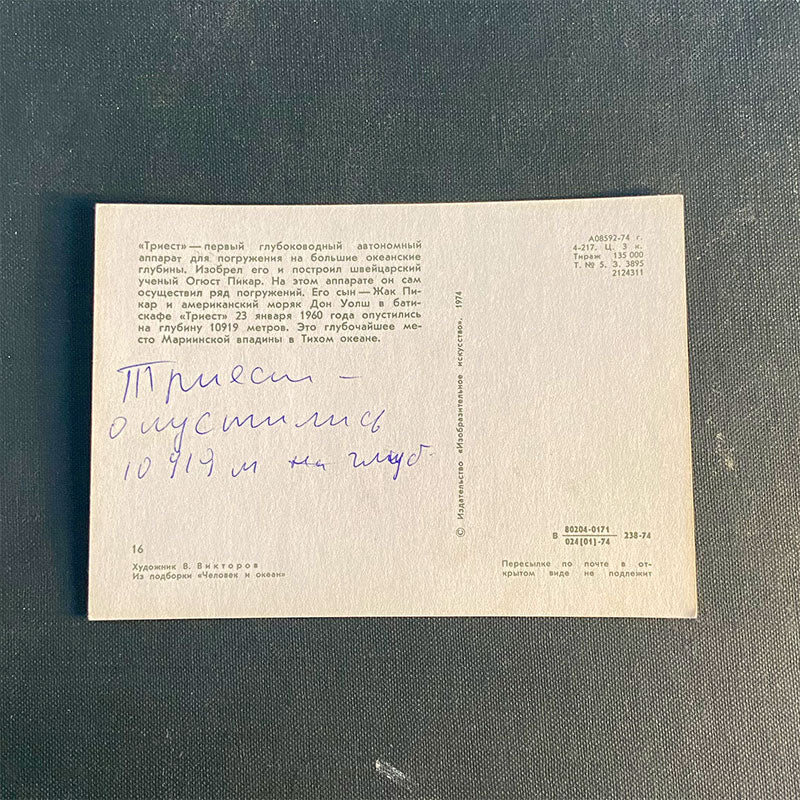 «Триест» — первый глубоководный автономный
аппарат для погружения на большие океанские
глубины. Изобрел его и построил швейцарский
ученый Огюст Пикар. На этом аппарате он сам
осуществил ряд погружений. Его сын — Жак Пи-
кар и американский моряк Дон Уолш в бати-
скафе «Триест» 23 января 1960 года опустились
на глубину 10919 метров. Это глубочайшее ме-
сто Мариинской впадины в Тихом океане.
Триест –
опустились
10 919 м на глуб.
16
Художник В. Викторов
Из подборки «Человек и океан»
© Издательство «Изобразительное искусство», 1974
А08592-74 г.
4-217. Ц. 3 к.
Тираж 135 000
Т. № 5. З. 3895
2124311
В 80204-0171 238-74
024[01]-74
Пересылке по почте в от-
крытом виде не подлежит